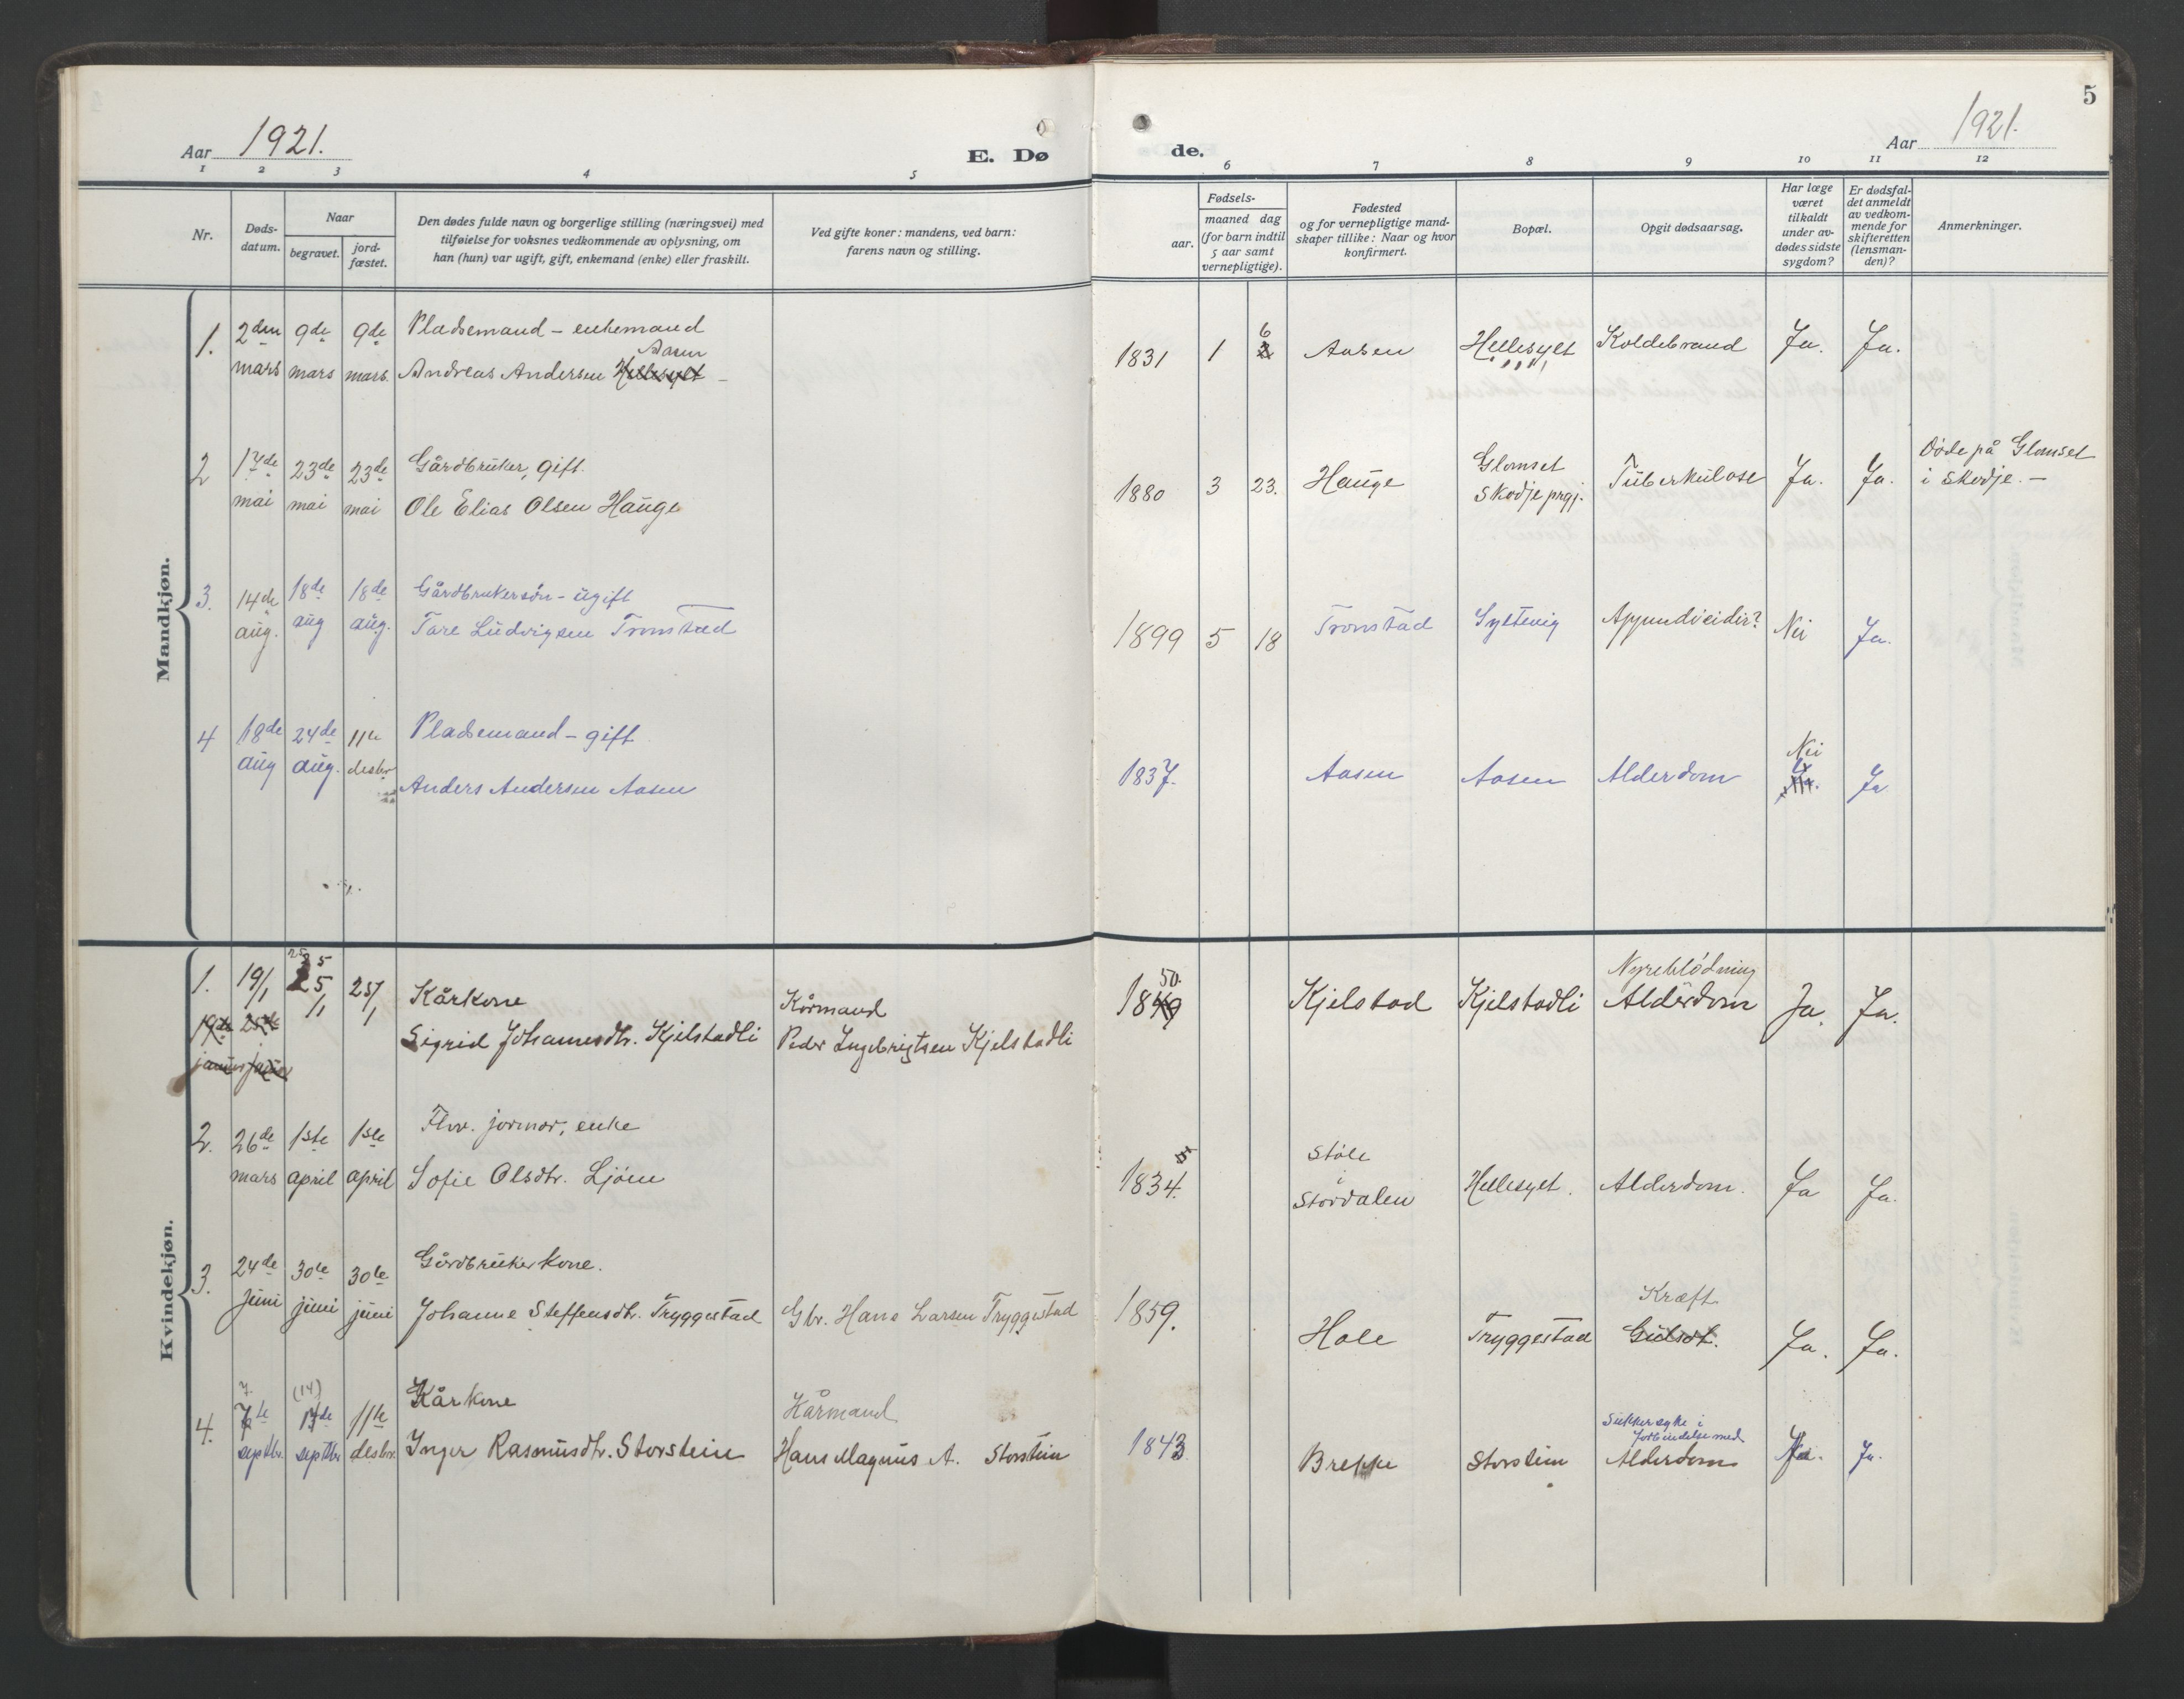 Aar 1921.
E. Dø
de.
Aar 1921.
5
1 2 3 4 5 6 7 8 9 10 11 12
Nr.
Døds-
datum.
Naar
begravet.
jord-
fæstet.
Den dødes fulde navn og borgerlige stilling (næringsvei) med
tilføielse for voksnes vedkommende av oplysning, om
han (hun) var ugift, gift, enkemand (enke) eller fraskilt.
Ved gifte koner: mandens, ved barn:
farens navn og stilling.
Fødsels-
aar.
maaned dag
(for barn indtil
5 aar samt
vernepligtige).
Fødested
og for vernepligtige mand-
skaper tillike: Naar og hvor
konfirmert.
Bopæl.
Opgit dødsaarsag.
Har læge
været
tilkaldt
under av-
dødes sidste
sygdom?
Er dødsfal-
det anmeldt
av vedkom-
mende for
skifteretten
(lensman-
den)?
Anmerkninger.
Mandkjøn.
1. 2den 9de 9de Pladsemand - enkemand
Aasen
mars mars mars. Andreas Andersen Hellesylt -
1831 1 6 Aasen Hellesylt Koldebrand Ja. Ja.
2 17de 23de 23de Gårdbruker, gift.
mai mai mai Ole Elias Olsen Hauge
1880 3 23. Hauge Glomset Tuberkulose Ja. Ja. Døde på Glomset
Skodje prgj. i Skodje. -
3. 14de 18de 18de Gårdbrukersøn - ugift
aug. aug aug. Tore Ludvigsen Tronstad
1899 5 18 Tronstad Syltevig Appendicidir? Nei Ja.
4 18de 24de 11te Pladsemand - gift
aug aug. desbr
Anders Andersen Aasen
Nei
1837. Aasen Aasen Alderdom Ja. Ja
Kvindekjøn.
1. 19/1 25/1 25/1 Kårkone Kårmand
19de 25de
januar januar
Sigrid Johannesdtr. Kjelstadli Peder Ingebrigtsen Kjelstadli
50. Nyreblødning
1849 Kjelstad Kjelstadli Alderdom Ja. Ja.
2. 26de 1ste 1ste Fhv. jormor, enke
mars april april Sofie Olsdtr. Ljøen
5 Støle
1834. i
Stordalen Hellesylt. Alderdom. Ja Ja.
3. 24de 30te 30te Gårdbrukerkone.
juni juni juni Johanne Steffensdtr. Tryggestad Gbr. Hans Larsen Tryggestad
Kræft
1859. Hole Tryggestad Gulsot. Ja. Ja.
7. (14)
4. 7te 14de 11te Kårkone Kårmand
septbr. septbr desbr. Inger Rasmusdtr. Storstein Hans Magnus A. Storstein
Sukkersyke i
forbindelse med
1843 Brekke Storstein Alderdom Ja. Ja.